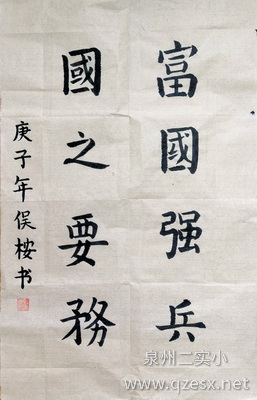 富國强兵
國之要務
庚子年俣桉书
泉州二实小
www.qzesx.net